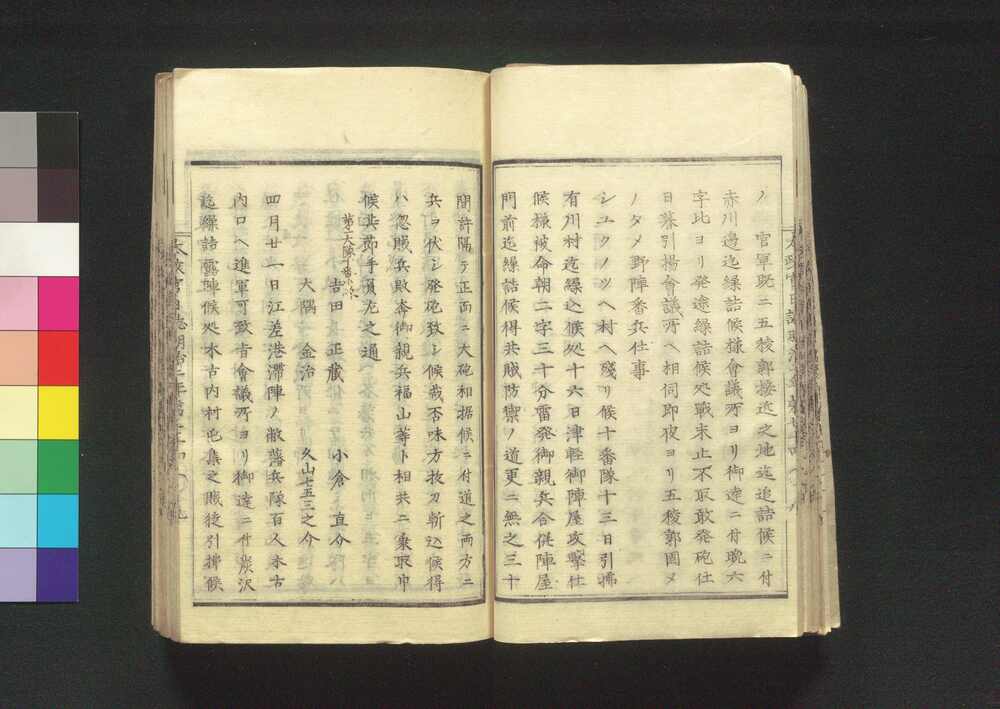 ノ官軍既ニ五稜郭接近之地迄追詰候ニ付
赤川邊迄繰詰候様會議所ヨリ御達ニ付晩六
字比ヨリ発途繰詰候処戦未止不取敢発砲仕
日暮引揚會議所ヘ相伺即夜ヨリ五稜郭圍メ
ノタメ野陣番兵仕事
シユクノツヘ村ヘ殘リ候十番隊十三日引拂
有川村迄繰込候処十六日津軽御陣屋攻撃仕
候様被命朝二字三十分雷発御親兵合併陣屋
門前迄繰詰候得共賊防禦ノ道更ニ無之三十
間許隔テ正面ニ大砲和据候ニ付道之両方ニ
兵ヲ伏シ発砲致シ候哉否味方抜刀斬込候得
ハ忽賊兵敗奔御親兵福山等ト相共ニ乗取申
候其節手負左之通
吉田正蔵 小倉直分
大隅金治 久山七五三之介
四月廿一日江差港滞陣ノ敝藩兵隊百人木古
内口ヘ進軍可致旨會議所ヨリ御達ニ付炭沢
迄繰詰露陣候処木古内村屯集之賊徒引拂候